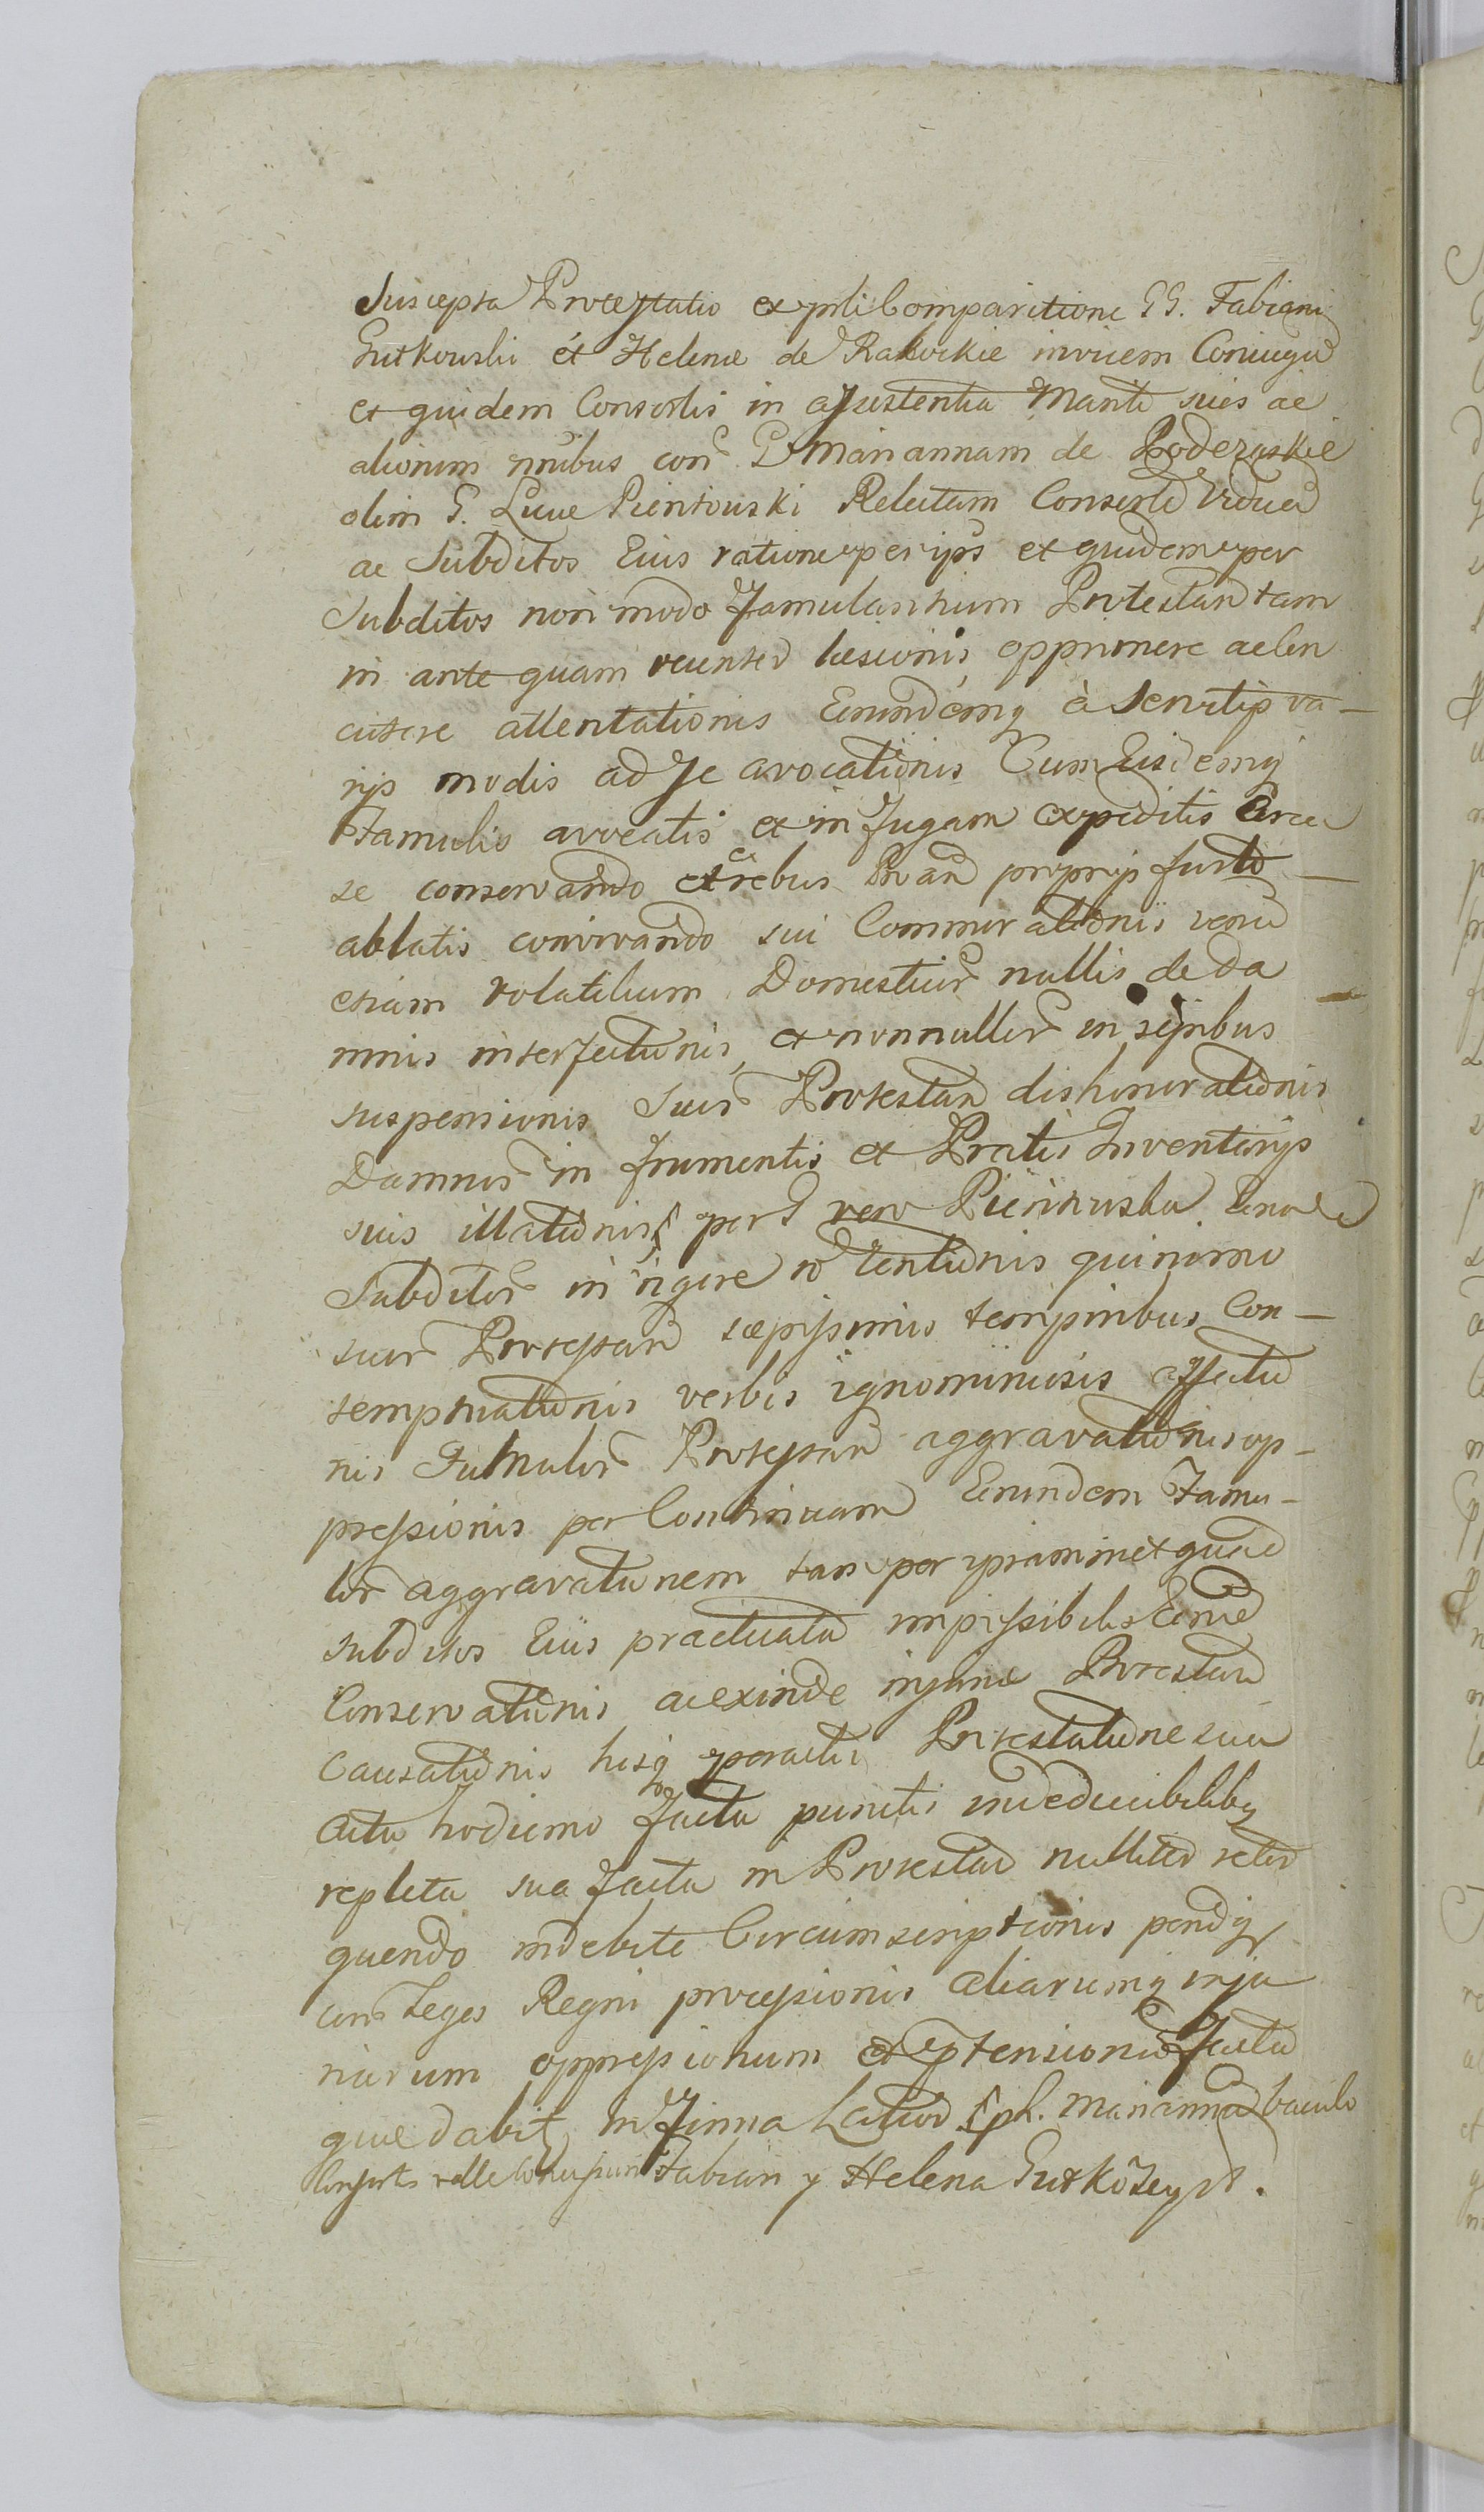 Suscepta Protestatio ex prsli Comparitione GG. Fabiani
Gutkowski et Helenæ de Rakockie invicem Coniugū
et quidem Consortis in assistentia Mariti suis ac
aliorum nnibus con G Mariannam de Boderaskie
olim G. Lucæ Pieńkowski Relictam Consortē Viduā
ac Subditos Eius ratione per ips et quidem per
Subditos non modo Famulantium Protestan tam
in ante quam recenter læsionis opprimere ac len
citere attentationis Eorundemq à Servitijs va-
rijs modis ad se avocationis Cum Eisdemq
Famulis avocatis et in fugam expeditis Circa
se conservando et rebus Protan proprijs furto
ablatis convivando sui Commorationis
etiam volatilium Domesticor nullis de da
mnis interfectionis et nonnullor in sepibus
suspensionis Suor Protestan dishonorationis
Damnor in frumentis et Pratis Inventarijs
suis illationis per G vero Pieńkowska
Subditor in rigore non tentionis quinimo
suor Protestan sæpissimis temporibus Con-
temptuationis verbis ignominiosis affectio
nis Famulor Protestan aggravationis op-
pressionis per Continuam Eorundem Famu-
lor aggravationem tam per ipsammet quā
subditos Eius practicatā impossibilis Eorund
Conservationis ac exinde injuriæ Protestan
Causationis hisq peractis Protestatione sua
Actu hodierno facta punctis indeducibilibq
repleta sua facta in Protestan nulliter retor
quendo indebite Circumscriptionis
con Leges Regni processionis aliarumq inju
riarum oppressionum et ptensionum factā
quæ dabit In Finna Latior Sph. Marianna baculo
Fabian y Helena Gutkoscy